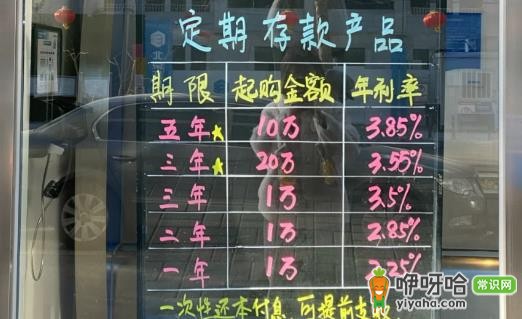 定期存款产品
期限 起购金额 年利率
五年★ 10万 3.85%
三年★ 20万 3.55%
三年 1万 3.5%
二年 1万 2.85%
一年 1万 2.25%
一次性还本付息 可提前支
咿呀哈 常识网
yiyaha.com